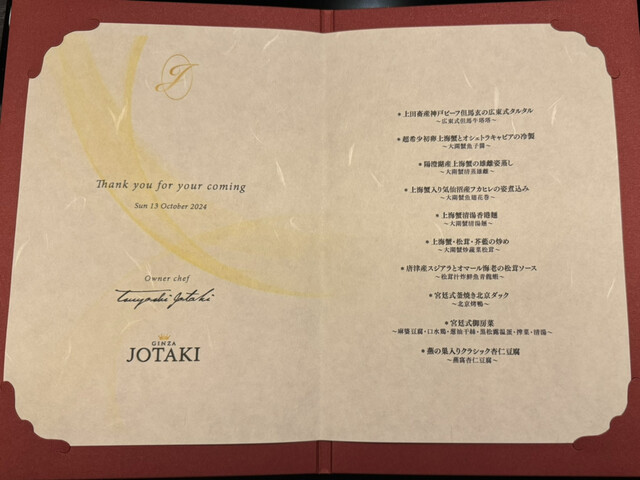 J
Thank you for your coming
Sun 13 October 2024
Owner chef
Tsuyoshi Jotaki
GINZA
JOTAKI
上田畜産神戸ビーフ但馬玄の広東式タルタル
~広東式但馬牛塔塔~
超希少初卵上海蟹とオシェトラキャビアの冷製
~大閘蟹魚子醤~
陽澄湖産上海蟹の雄雌姿蒸し
~大閘蟹清蒸雄雌~
上海蟹入り気仙沼産フカヒレの姿煮込み
~大閘蟹魚翅花巻~
上海蟹清湯香港麺
~大閘蟹清湯麺~
上海蟹・松茸・芥藍の炒め
~大閘蟹炒蔬菜松茸~
唐津産スジアラとオマール海老の松茸ソース
~松茸汁作鮮魚青龍蝦~
宮廷式釜焼き北京ダック
~北京烤鴨~
宮廷式御房菜
~麻婆豆腐・口水鶏・葱油干絲・黒松露温蛋・搾菜・清湯~
燕の巣入りクラシック杏仁豆腐
~燕窩杏仁豆腐~